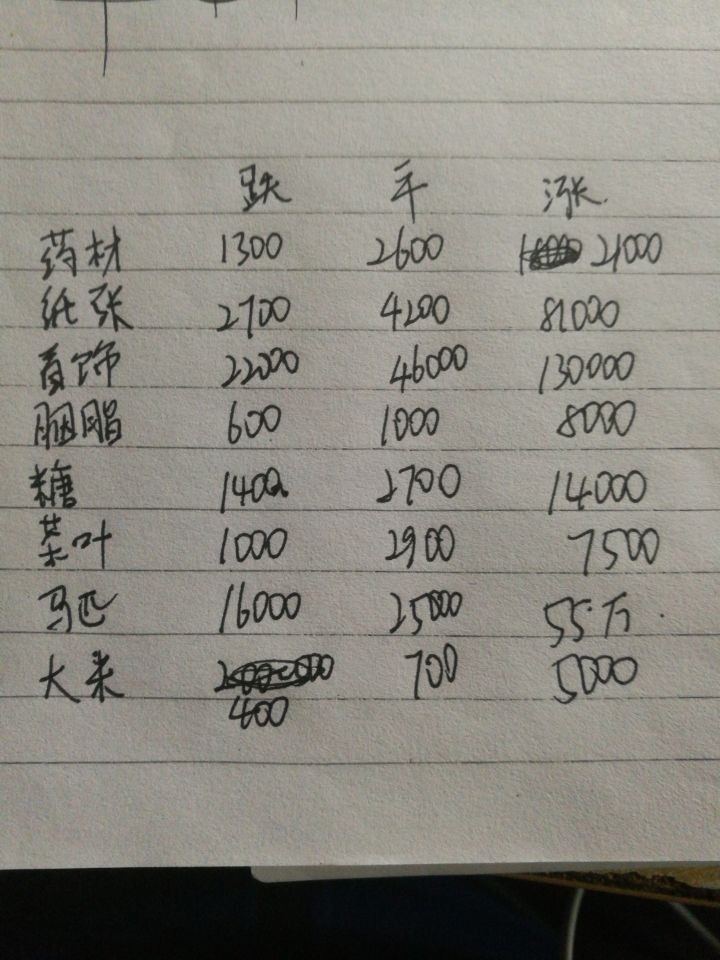 跌 平 涨
药材 1300 2600 21000
纸张 2700 4200 81000
首饰 22000 46000 130000
胭脂 600 1000 8000
糖 1400 2700 14000
茶叶 1000 2900 7500
马匹 16000 25000 55万
大米 700 5000
400